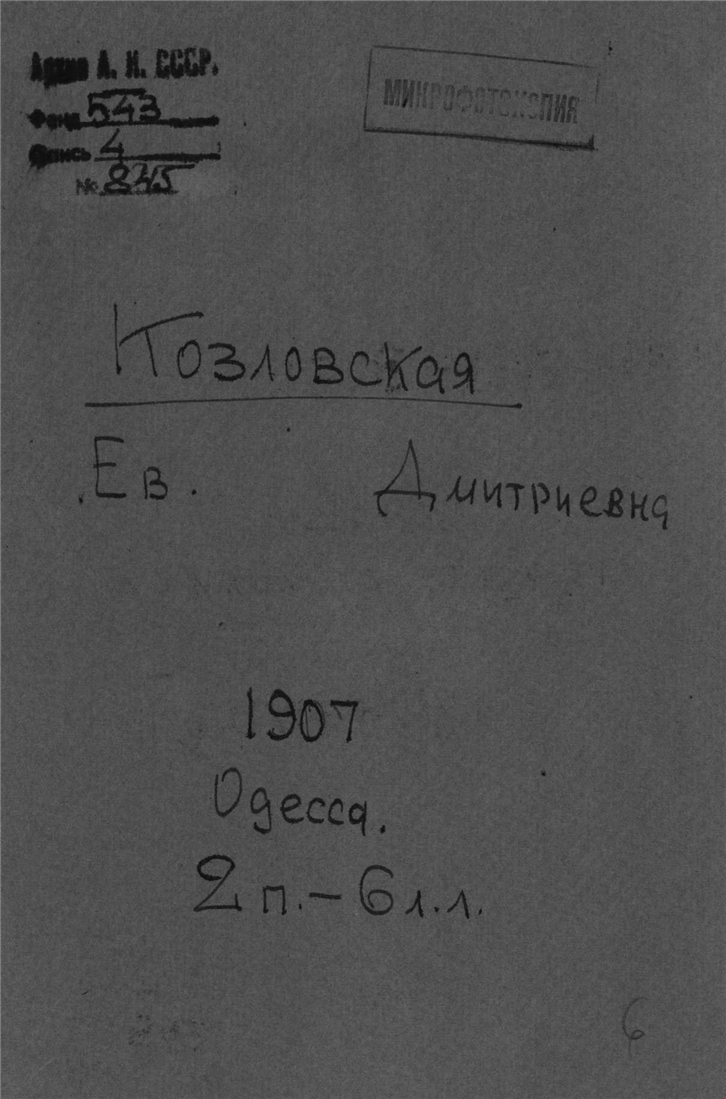 Архив А. Н. СССР.
Фонд 543
Опись 4
№ 845
МИКРОФОТОКОПИЯ
Козловская
Ев. Дмитриевна
1907
Одесса.
2 п. – 6 л.л.
6